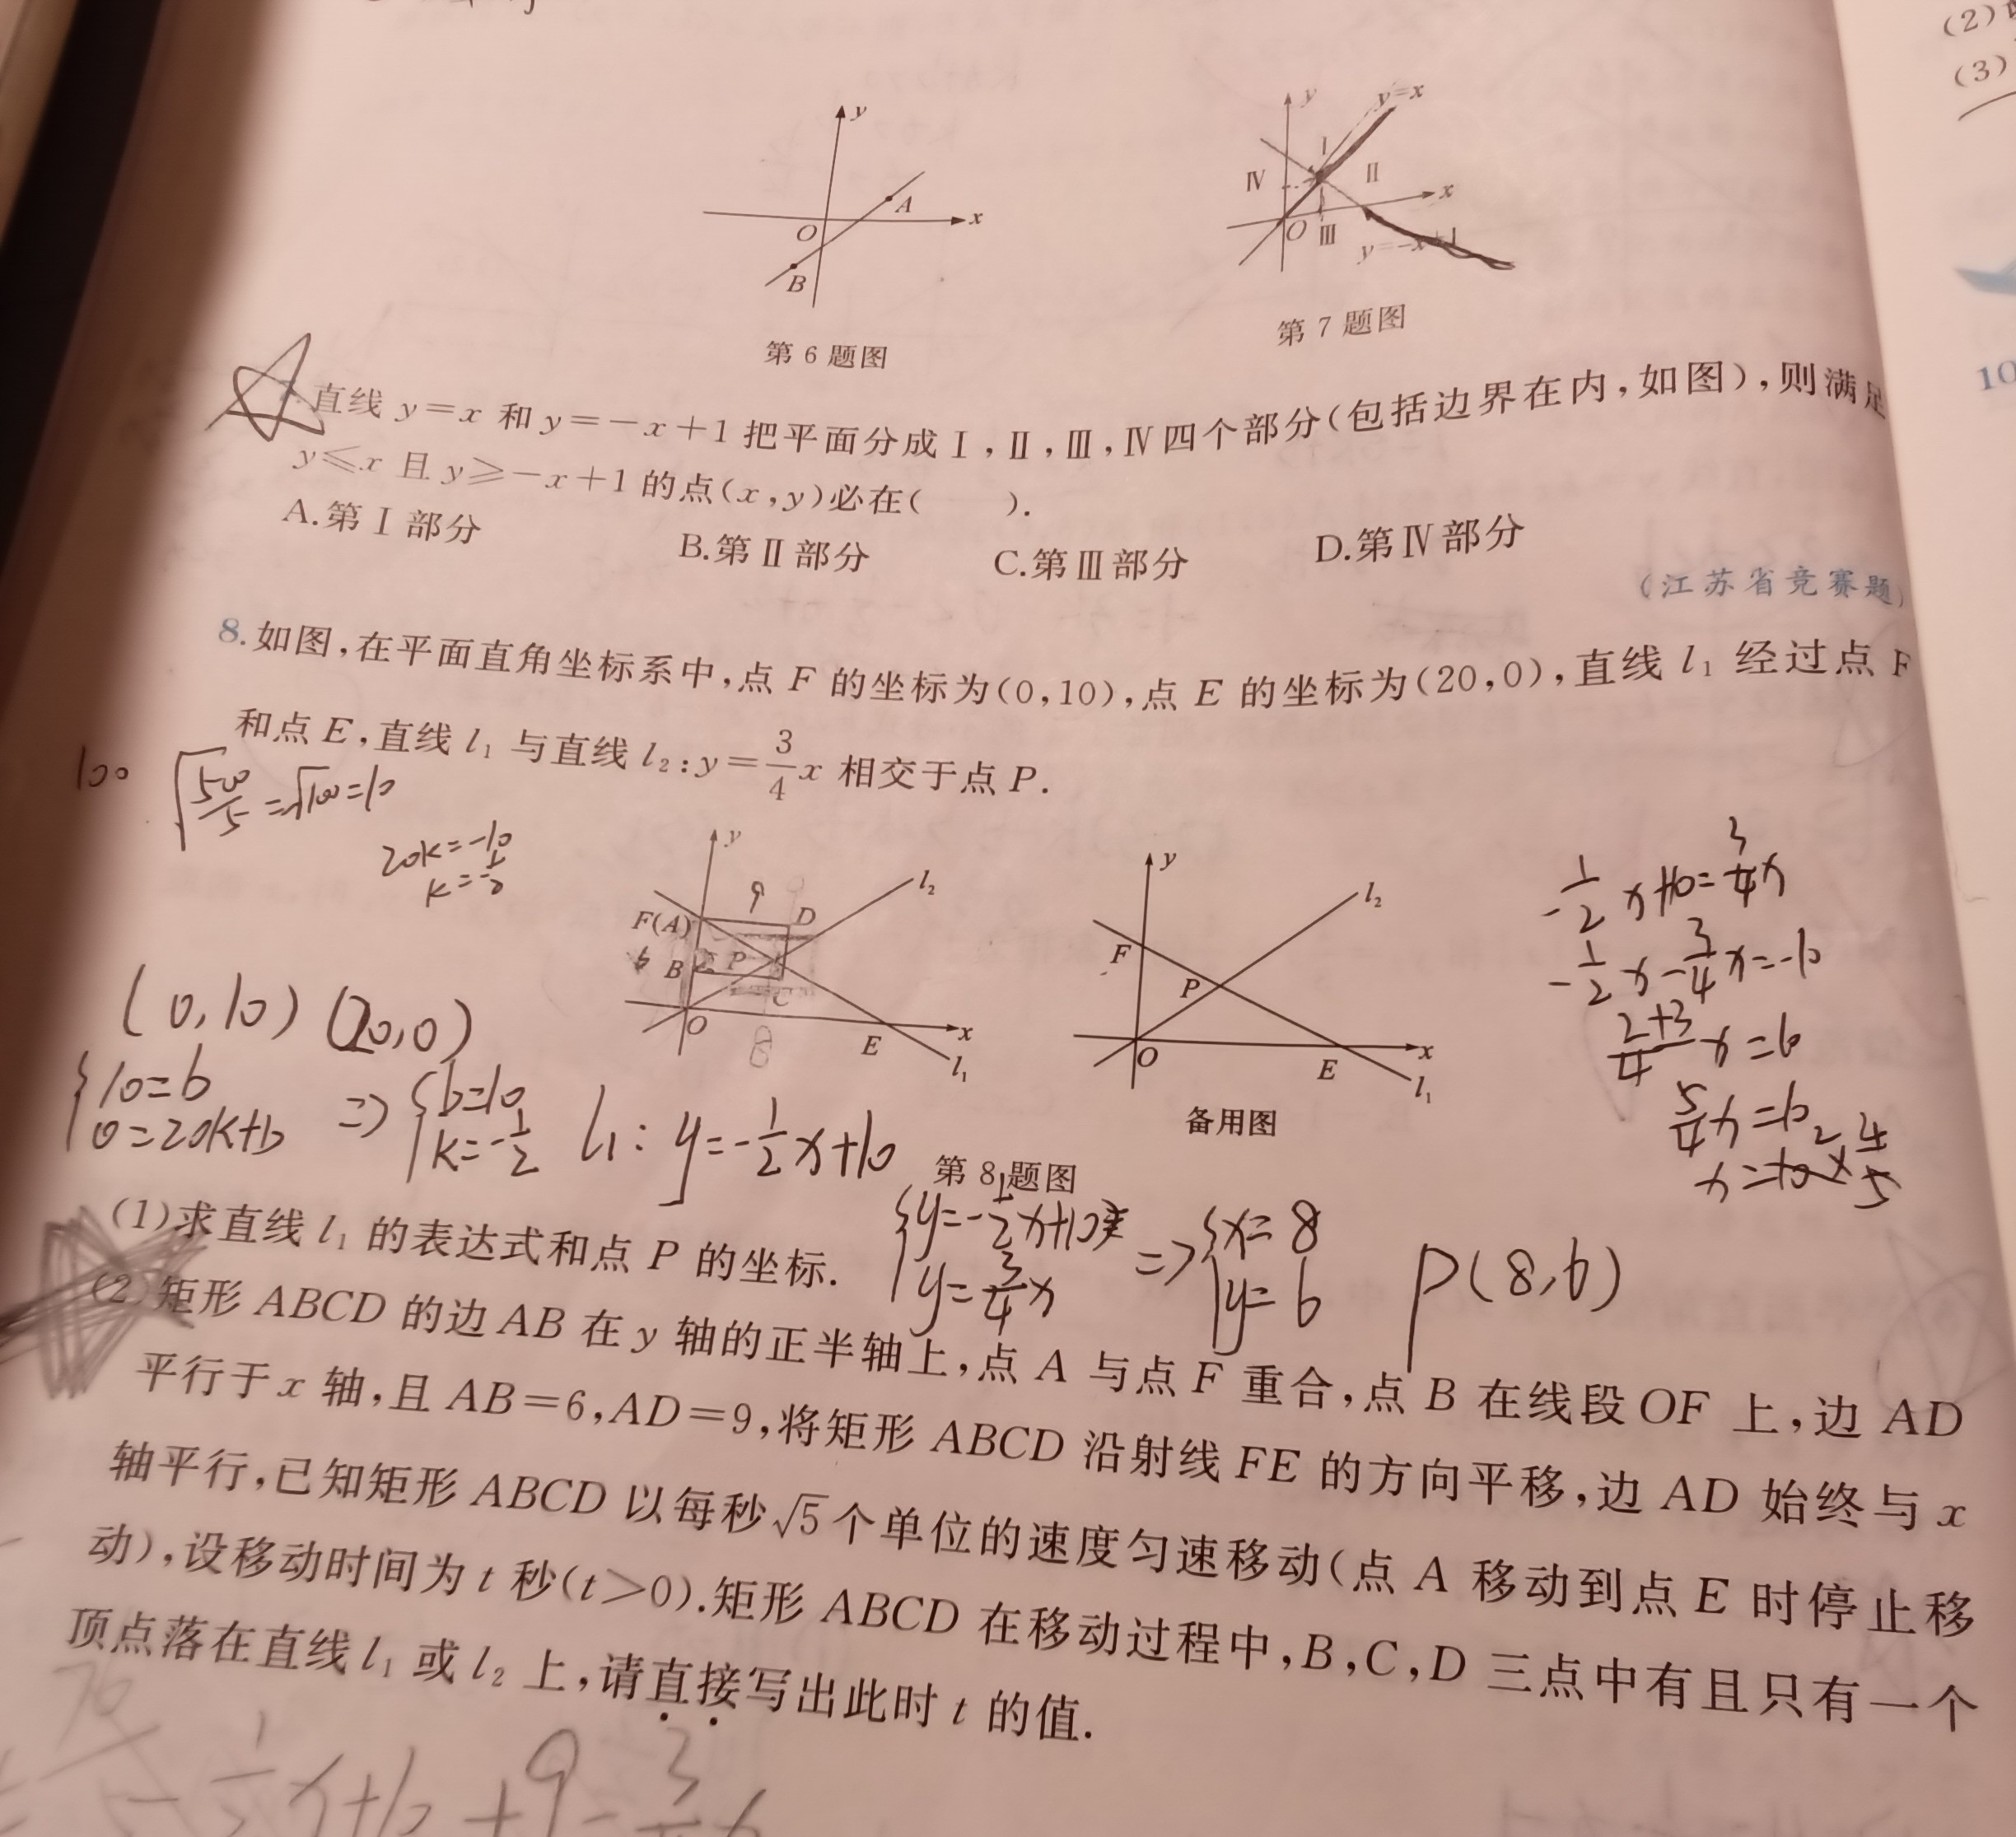 (2)
(3)
y
A
x
O
B
第6题图
y
y=x
Ⅰ
Ⅳ
Ⅱ
x
O
Ⅲ
y=-x+1
第7题图
10
直线 y=x 和 y=-x+1 把平面分成Ⅰ,Ⅱ,Ⅲ,Ⅳ四个部分(包括边界在内,如图),则满足
y≤x 且 y≥-x+1 的点(x,y)必在(  ).
A.第Ⅰ部分 B.第Ⅱ部分 C.第Ⅲ部分 D.第Ⅳ部分
(江苏省竞赛题)
8.如图,在平面直角坐标系中,点 F 的坐标为(0,10),点 E 的坐标为(20,0),直线 l₁ 经过点 F
和点 E,直线 l₁ 与直线 l₂:y=3/4x 相交于点 P.
100
√(500/5)=√100=10
20k=-10
k=-1/2
y
l₂
9
F(A)
D
6
B
P
C
O
E
x
l₁
y
l₂
F
P
O
E
x
l₁
备用图
第8题图
-1/2x+10=3/4x
-1/2x-3/4x=-10
(2+3)/4x=10
5/4x=10
x=10×4/5
(0,10) (20,0)
{10=b
0=20k+b
=>{b=10
k=-1/2
l₁: y=-1/2x+10
(1)求直线 l₁ 的表达式和点 P 的坐标.
{y=-1/2x+10
y=3/4x
=>{x=8
y=6
P(8,6)
(2)矩形 ABCD 的边 AB 在 y 轴的正半轴上,点 A 与点 F 重合,点 B 在线段 OF 上,边 AD
平行于 x 轴,且 AB=6,AD=9,将矩形 ABCD 沿射线 FE 的方向平移,边 AD 始终与 x
轴平行,已知矩形 ABCD 以每秒√5个单位的速度匀速移动(点 A 移动到点 E 时停止移
动),设移动时间为 t 秒(t>0).矩形 ABCD 在移动过程中,B,C,D 三点中有且只有一个
顶点落在直线 l₁ 或 l₂ 上,请直接写出此时 t 的值.